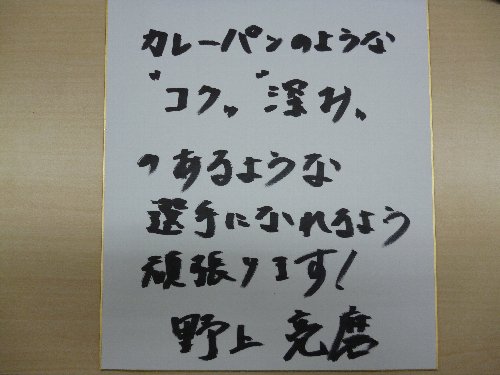 カレーパンのような
"コク" "深み"
のあるような
選手になれるよう
頑張ります!
野上 亮磨